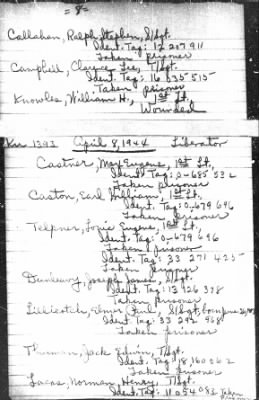 - 8 -
Callahan, Ralph Stephen, S/Sgt.
Ident. Tag: 12 207 911
Taken prisoner
Campbell, Lee, T/Sgt.
Ident. Tag: 16 035 515
Taken prisoner
Knowles, William H., 1st Lt.
Wounded
Ku 1343 April 8, 1944 Liberator
Castner, Max Eugene, 1st Lt.,
Ident. Tag: 0-685 532
Taken prisoner
Caston, Earl William, 1st Lt.,
Ident. Tag: 0-679 696
Taken prisoner
Eugene, 1st Lt.,
Ident. Tag: 0-679 696
Taken prisoner
Ident. Tag: 33 271 425
Taken prisoner
Dunleavy, Joseph James, S/Sgt.
Ident. Tag: 13 126 378
Taken prisoner
Paul, S/Sgt.
Ident. Tag: 33 292 968
Taken prisoner
Jack Edwin, T/Sgt.
Ident. Tag: 18 160 362
Taken prisoner
Lucas, Norman Henry, T/Sgt.
Ident. Tag: 11 054 083 Taken prisoner